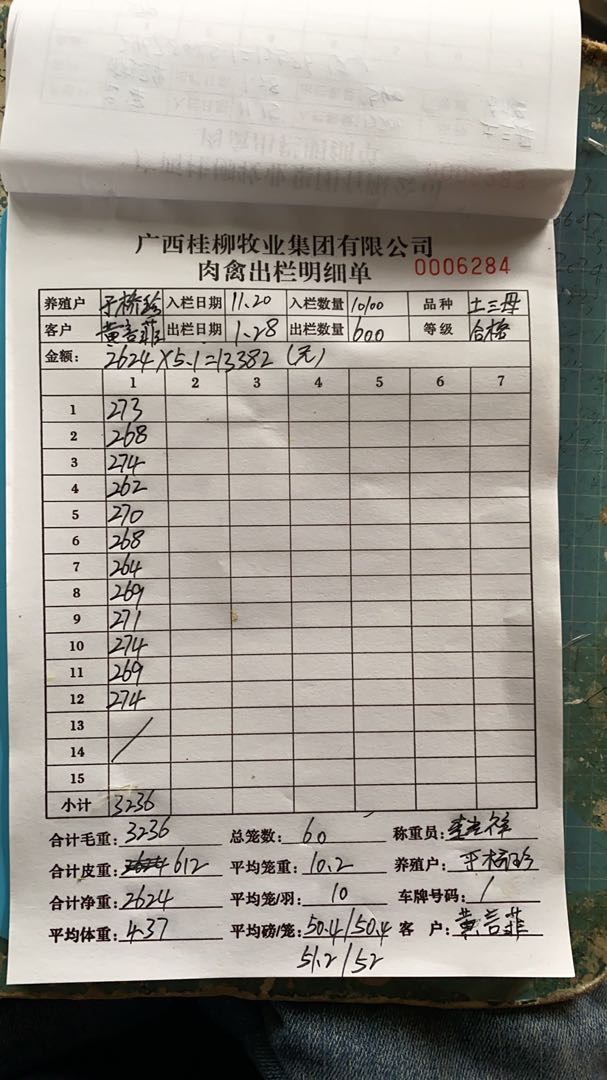 广西桂柳牧业集团有限公司
肉禽出栏明细单 0006284
养殖户 于桥珍 入栏日期 11.20 入栏数量 10100 品种 土三母
客户 黄言菲 出栏日期 1.28 出栏数量 600 等级 合格
金额: 2624×5.1=13382 (元)
1 2 3 4 5 6 7
1 273
2 268
3 274
4 262
5 270
6 268
7 264
8 269
9 271
10 274
11 269
12 274
13
14
15
小计 3236
合计毛重: 3236 总笼数: 60 称重员:
合计皮重: 612 平均笼重: 10.2 养殖户: 于桥珍
合计净重: 2624 平均笼/羽: 10 车牌号码: /
平均体重: 4.37 平均磅/笼: 50.4/50.4 客户: 黄言菲
51.2/52